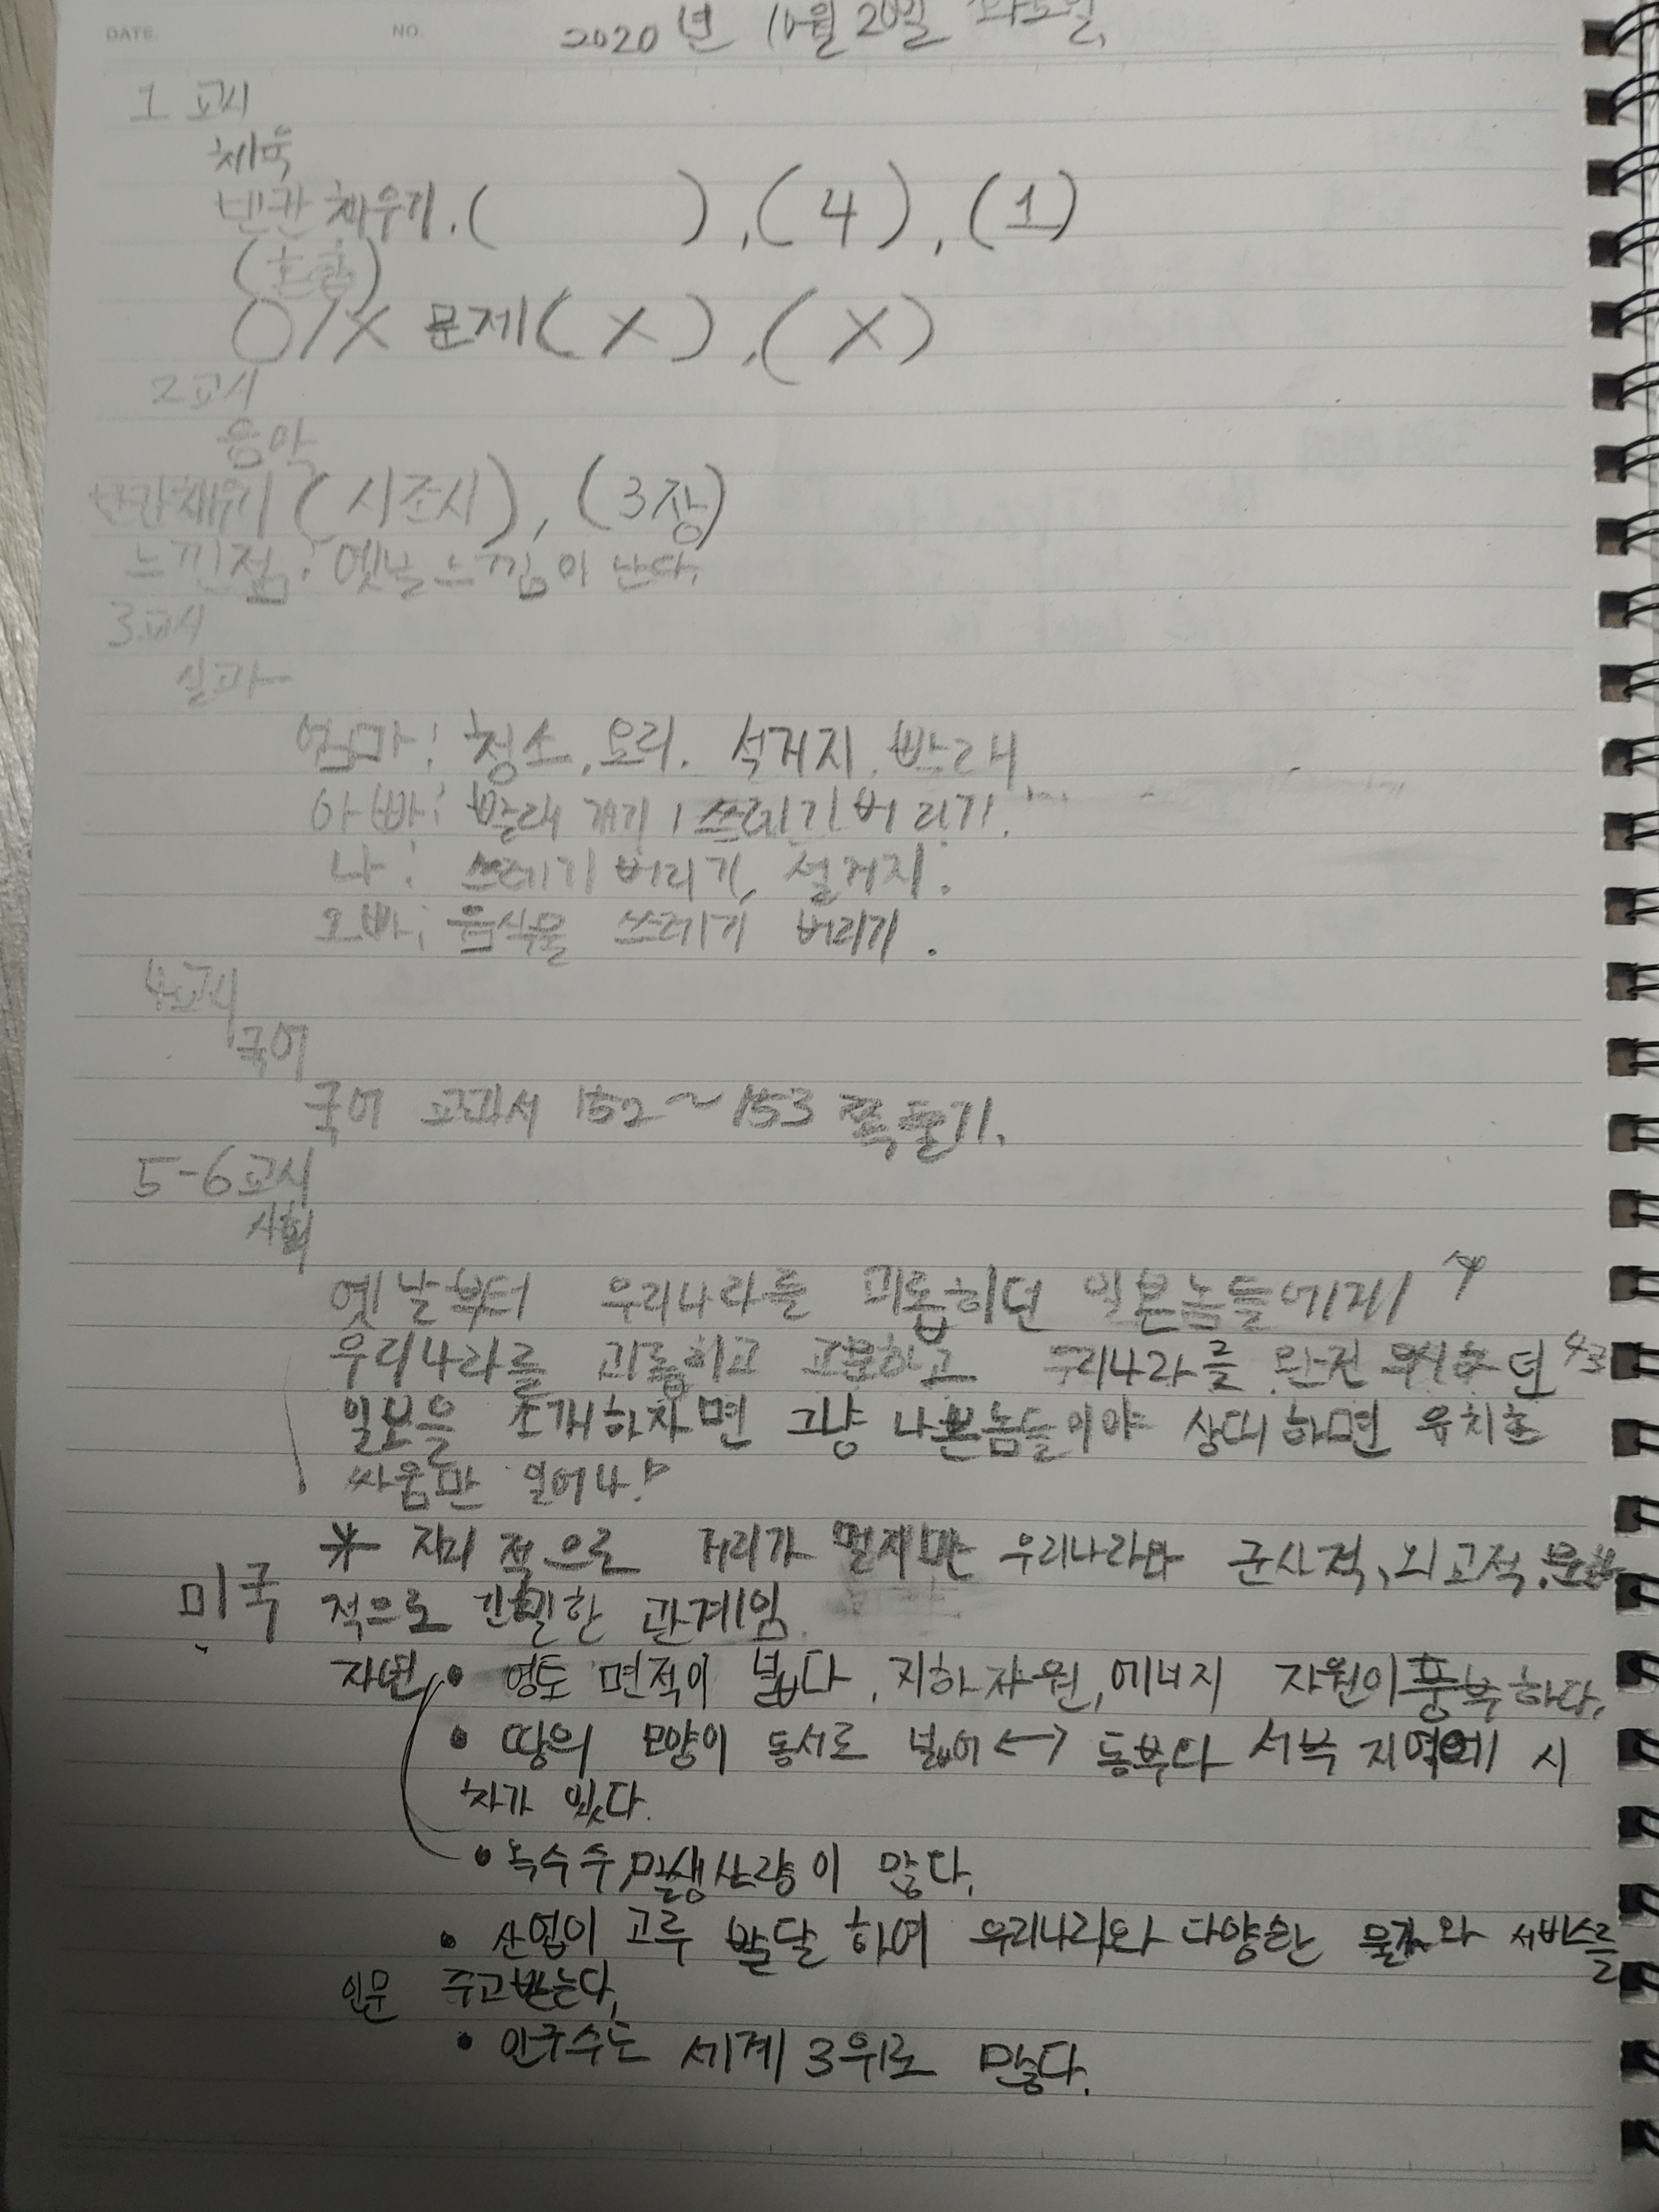 DATE. NO. 2020년 10월 20일 화요일.
1교시
체육
빈칸 채우기. ( ), (4), (1)
(호흡)
O/X 문제 (X), (X)
2교시
음악
빈칸채우기 (시조시), (3장)
느낀점: 옛날 느낌이 난다.
3교시
실과
엄마: 청소, 요리, 설거지, 빨래
아빠: 빨래 개기, 쓰레기 버리기.
나: 쓰레기 버리기, 설거지.
오빠: 음식물 쓰레기 버리기.
4교시
국어
국어 교과서 152~153 쪽 풀기.
5-6교시
사회
옛날부터 우리나라를 괴롭히던 일본놈들에게
우리나라를 괴롭히고 고문하고 우리나라를 완전 던
일본을 소개하자면 그냥 나쁜놈들이야 상대하면 유치한
싸움만 일어나!
* 지리적으로 거리가 멀지만 우리나라와 군사적, 외교적, 문화
미국 적으로 긴밀한 관계임.
자연 • 영토 면적이 넓다. 지하자원, 에너지 자원이 풍부하다.
• 땅의 모양이 동서로 넓어 <-> 동부다 서부 지역에 시
차가 있다.
• 옥수수, 밀생산량이 많다.
• 산업이 고루 발달하여 우리나라와 다양한 물자와 서비스를
인문 주고받는다.
• 인구수는 세계 3위로 많다.